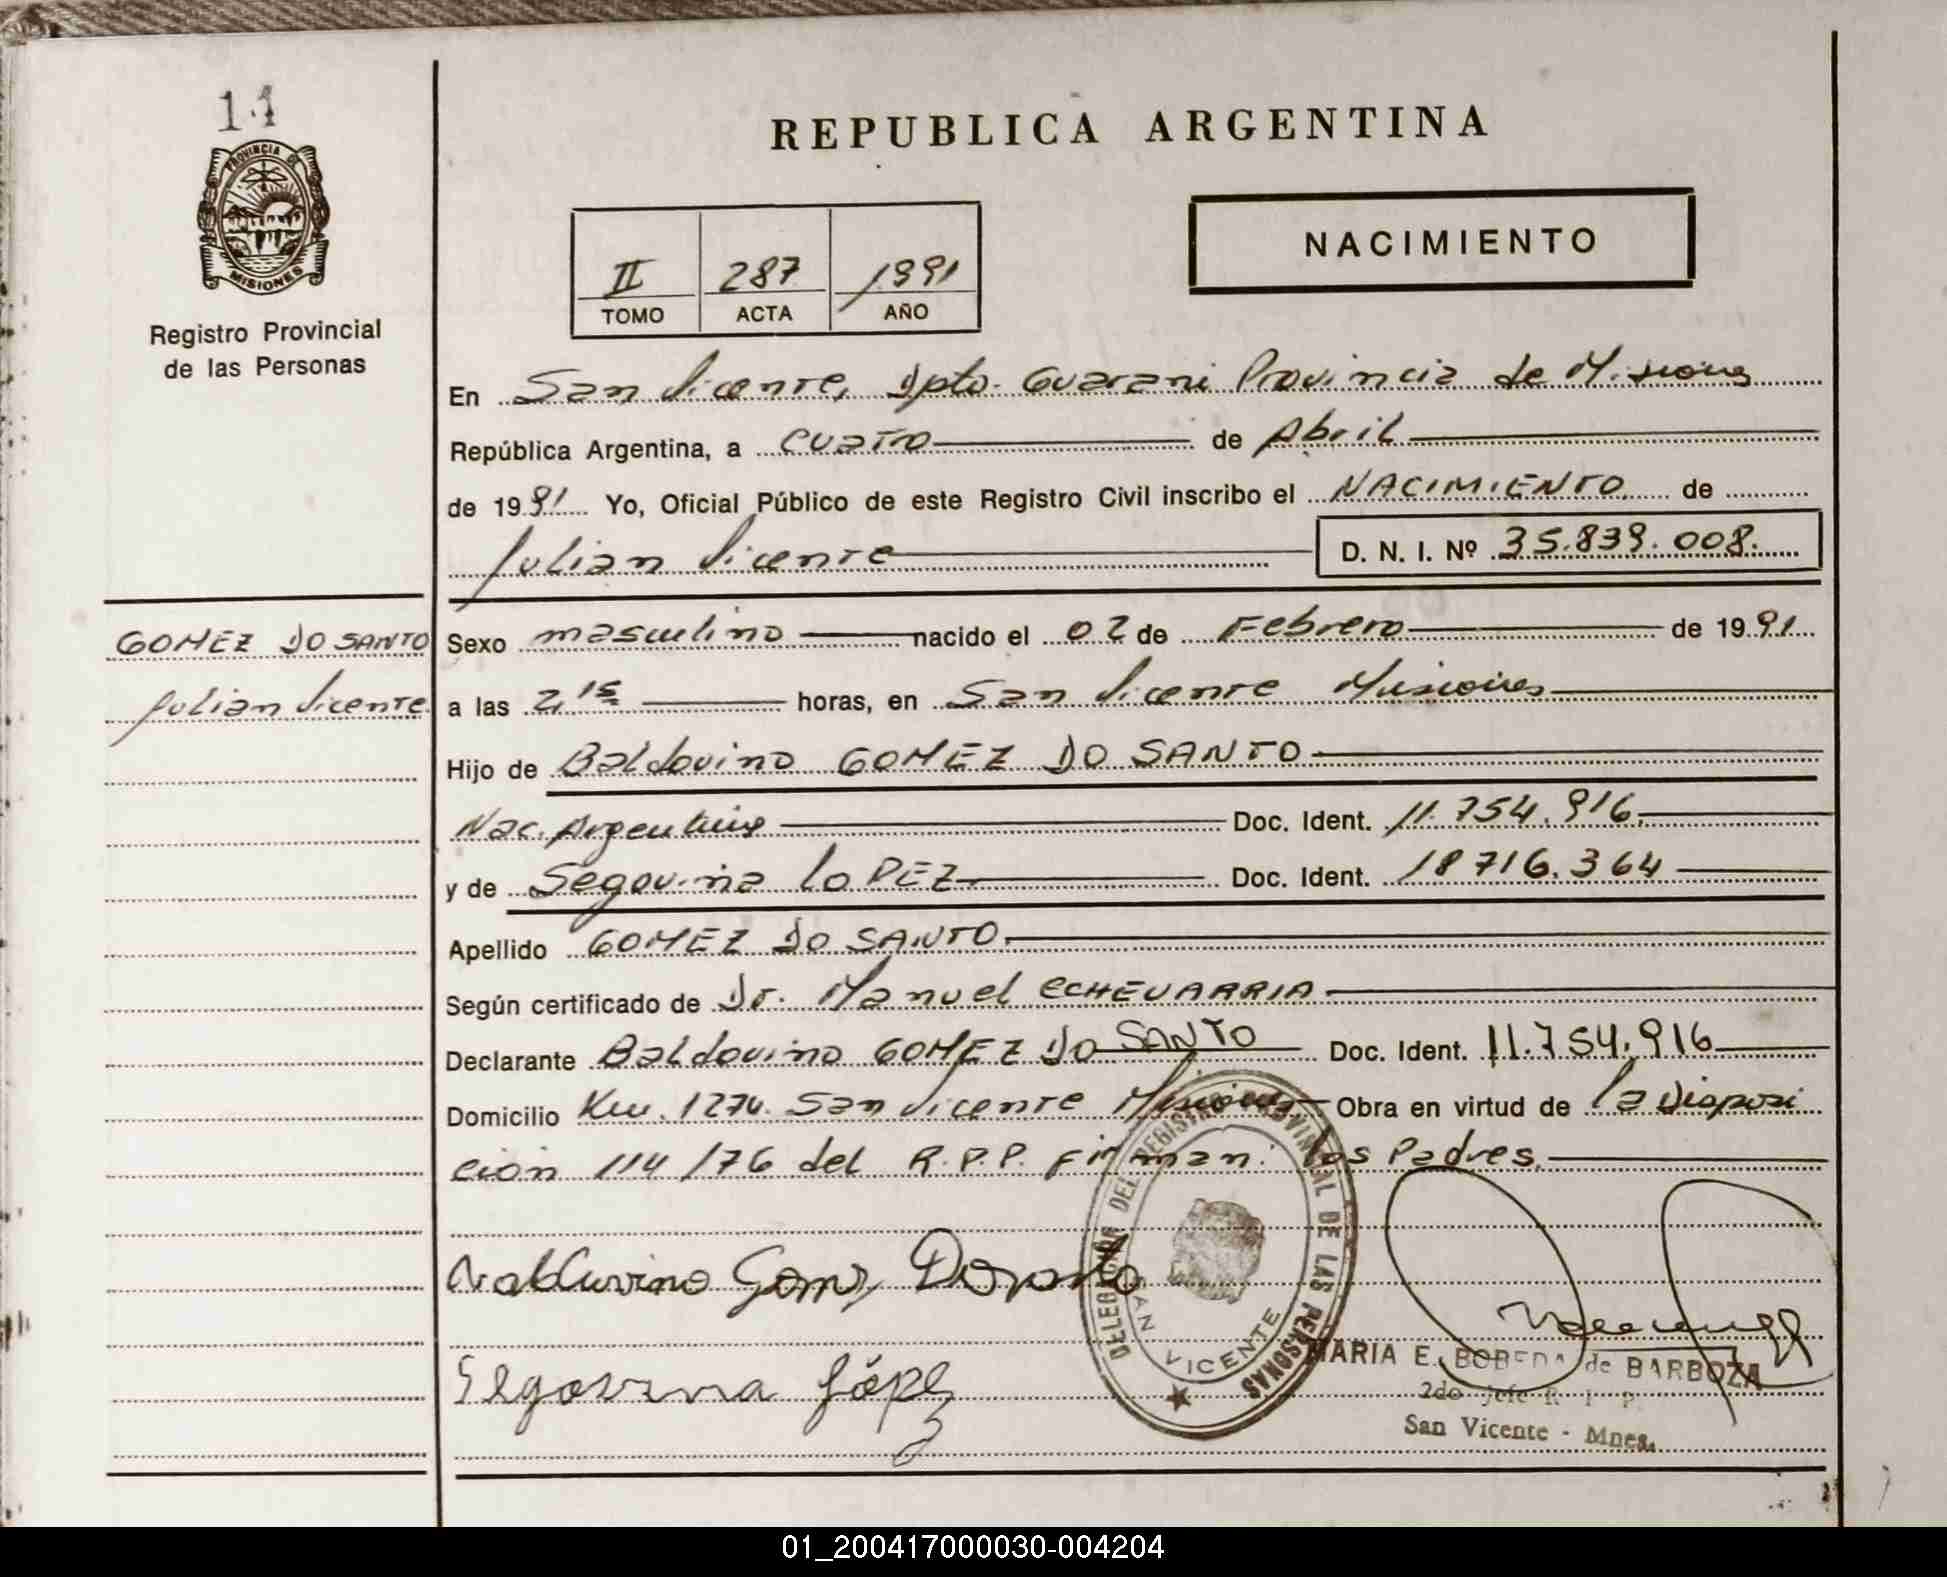 14
PROVINCIA DE
MISIONES
Registro Provincial
de las Personas
REPUBLICA ARGENTINA
NACIMIENTO
II 287 1991
TOMO ACTA AÑO
En San Vicente, Dpto. Guarani Provincia de Misiones
República Argentina, a cuatro de Abril
de 1991 Yo, Oficial Público de este Registro Civil inscribo el NACIMIENTO de
Julian Vicente D. N. I. Nº 35.839.008.
GOMEZ DO SANTO
Julian Vicente
Sexo masculino nacido el 02 de Febrero de 1991
a las 2,15 horas, en San Vicente Misiones
Hijo de Baldovino GOMEZ DO SANTO
Nac. Argentino Doc. Ident. 11.754.916.
y de Segovina LOPEZ Doc. Ident. 18716.364
Apellido GOMEZ DO SANTO.
Según certificado de Dr. Manuel ECHEVARRIA
Declarante Baldovino GOMEZ DO SANTO Doc. Ident. 11.754.916
Domicilio Km. 1270. San Vicente Misiones Obra en virtud de la Disposi
cion 114/76 del R.P.P. Firman: los Padres.
Gomz
Segovina López
DELEGACIÓN DEL REGISTRO PROVINCIAL DE LAS PERSONAS
SAN VICENTE
MARIA E. BOBEDA de BARBOZA
2do Jefe R. P. P.
San Vicente - Mnes.
01_200417000030-004204